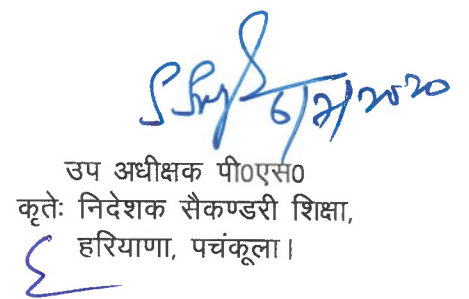 6/7/2020
उप अधीक्षक पी0एस0
कृतेः निदेशक सैकण्डरी शिक्षा,
हरियाणा, पचंकूला।